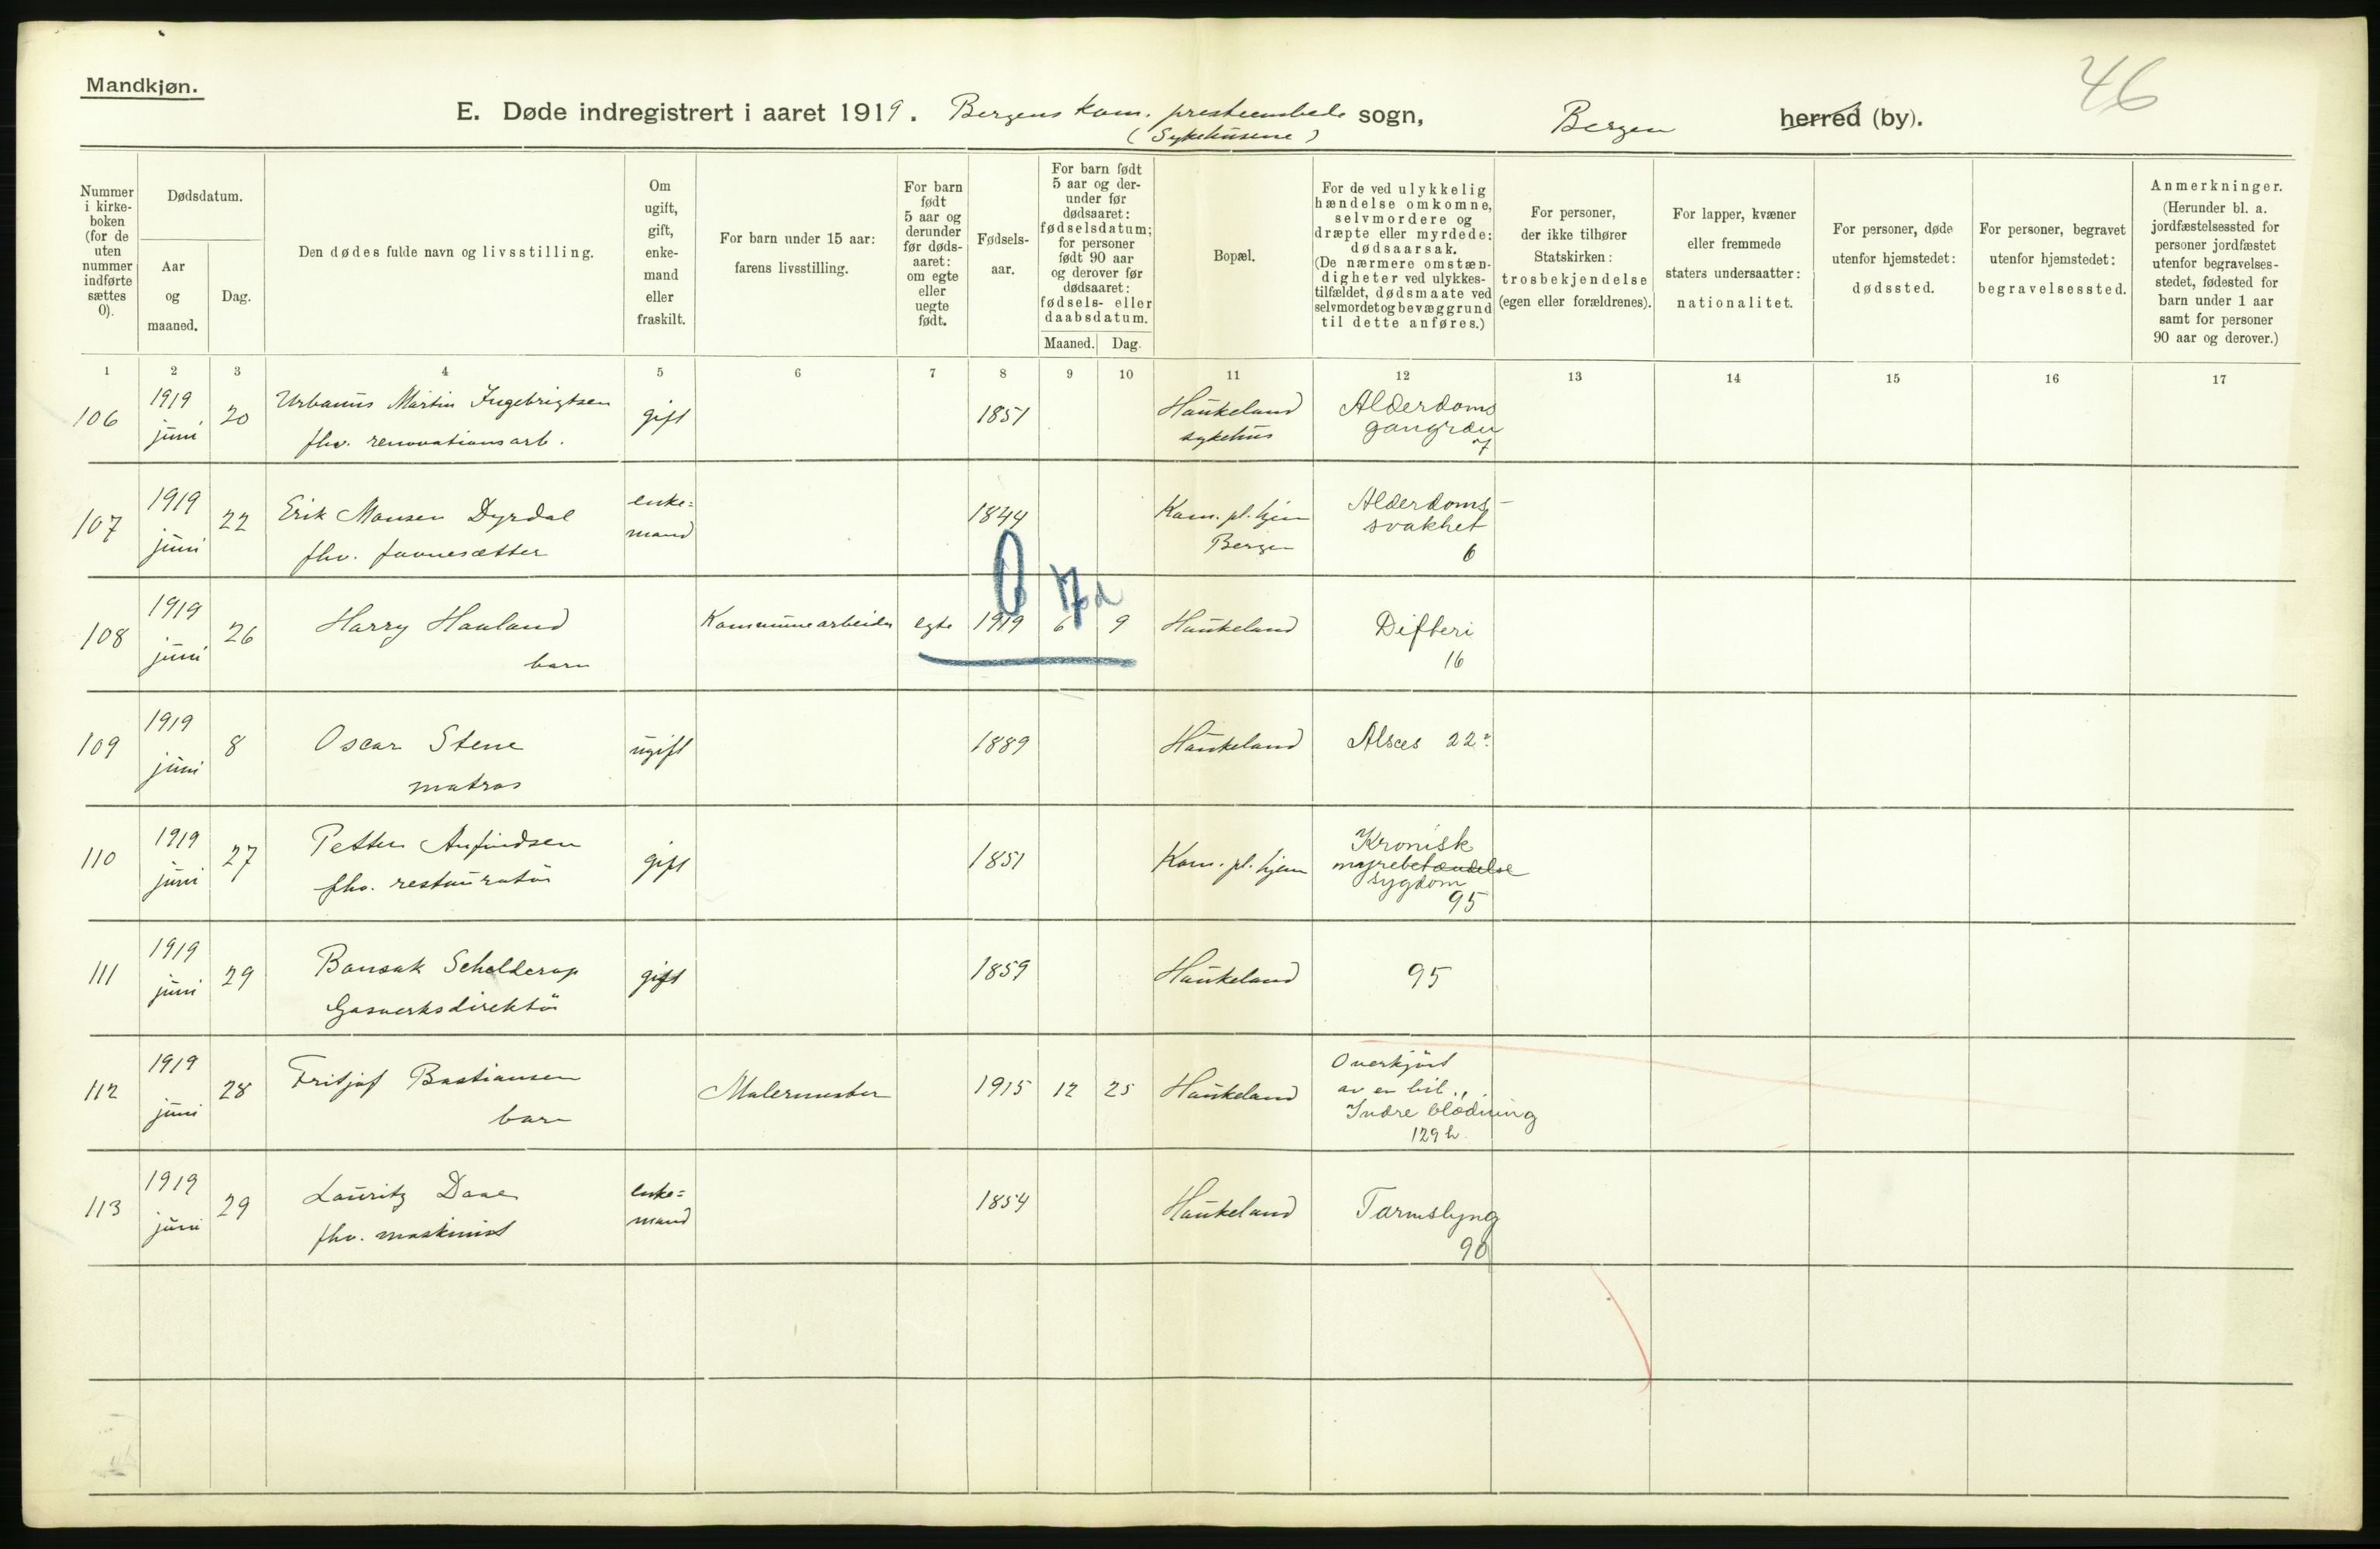 Mandkjøn.
46
E. Døde indregistrert i aaret 1919. Bergens kom. presteembede sogn, Bergen herred (by).
(Sykehusene)
Nummer i kirke-boken (for de uten nummer indførte sættes 0).
Dødsdatum.
Aar og maaned.
Dag.
Den dødes fulde navn og livsstilling.
Om ugift, gift, enke-mand eller fraskilt.
For barn under 15 aar: farens livsstilling.
For barn født 5 aar og derunder før døds-aaret: om egte eller uegte født.
Fødsels-aar.
For barn født 5 aar og der-under før dødsaaret: fødselsdatum; for personer født 90 aar og derover før dødsaaret: fødsels- eller daabsdatum.
Maaned.
Dag.
Bopæl.
For de ved ulykkelig hændelse omkomne, selvmordere og dræpte eller myrdede: dødsaarsak. (De nærmere omstæn-digheter ved ulykkes-tilfældet, dødsmaate ved selvmordet og bevæggrund til dette anføres.)
For personer, der ikke tilhører Statskirken: trosbekjendelse (egen eller forældrenes).
For lapper, kvæner eller fremmede staters undersaatter: nationalitet.
For personer, døde utenfor hjemstedet: dødssted.
For personer, begravet utenfor hjemstedet: begravelsessted.
Anmerkninger. (Herunder bl. a. jordfæstelsessted for personer jordfæstet utenfor begravelses-stedet, fødested for barn under 1 aar samt for personer 90 aar og derover.)
1 2 3 4 5 6 7 8 9 10 11 12 13 14 15 16 17
106 1919 juni 20 Urbanus Martin Ingebrigtsen fhv. renovationsarb. gift 1851 Haukeland sykehus Alderdoms gangræn 7
107 1919 juni 22 Erik Monsen Dyrdal fhv. favnesætter enke=mand 1844 Kom. pl. hjem Bergen Alderdoms-svakhet 6
108 1919 juni 26 Harry Hauland barn Kommunearbeider egte 1919 6 9 Haukeland Difteri 16
0 17 d
109 1919 juni 8 Oscar Stene matros ugift 1889 Haukeland Absces 22?
110 1919 juni 27 Petter Anfindsen fhv. restauratør gift 1851 Kom. pl. hjem Kronisk nyrebetændelse sygdom 95
111 1919 juni 29 Bonsak Schelderup Gasverksdirektør gift 1859 Haukeland 95
112 1919 juni 28 Fritjof Bastiansen barn Malermester 1915 12 25 Haukeland Overkjört av en bil., Indre blödning 129 h.
113 1919 juni 29 Lauritz Daae fhv. maskinist enke=mand 1854 Haukeland Tarmslyng 90